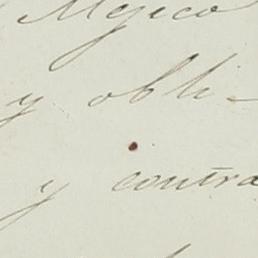 Mejico
y obli-
y contra